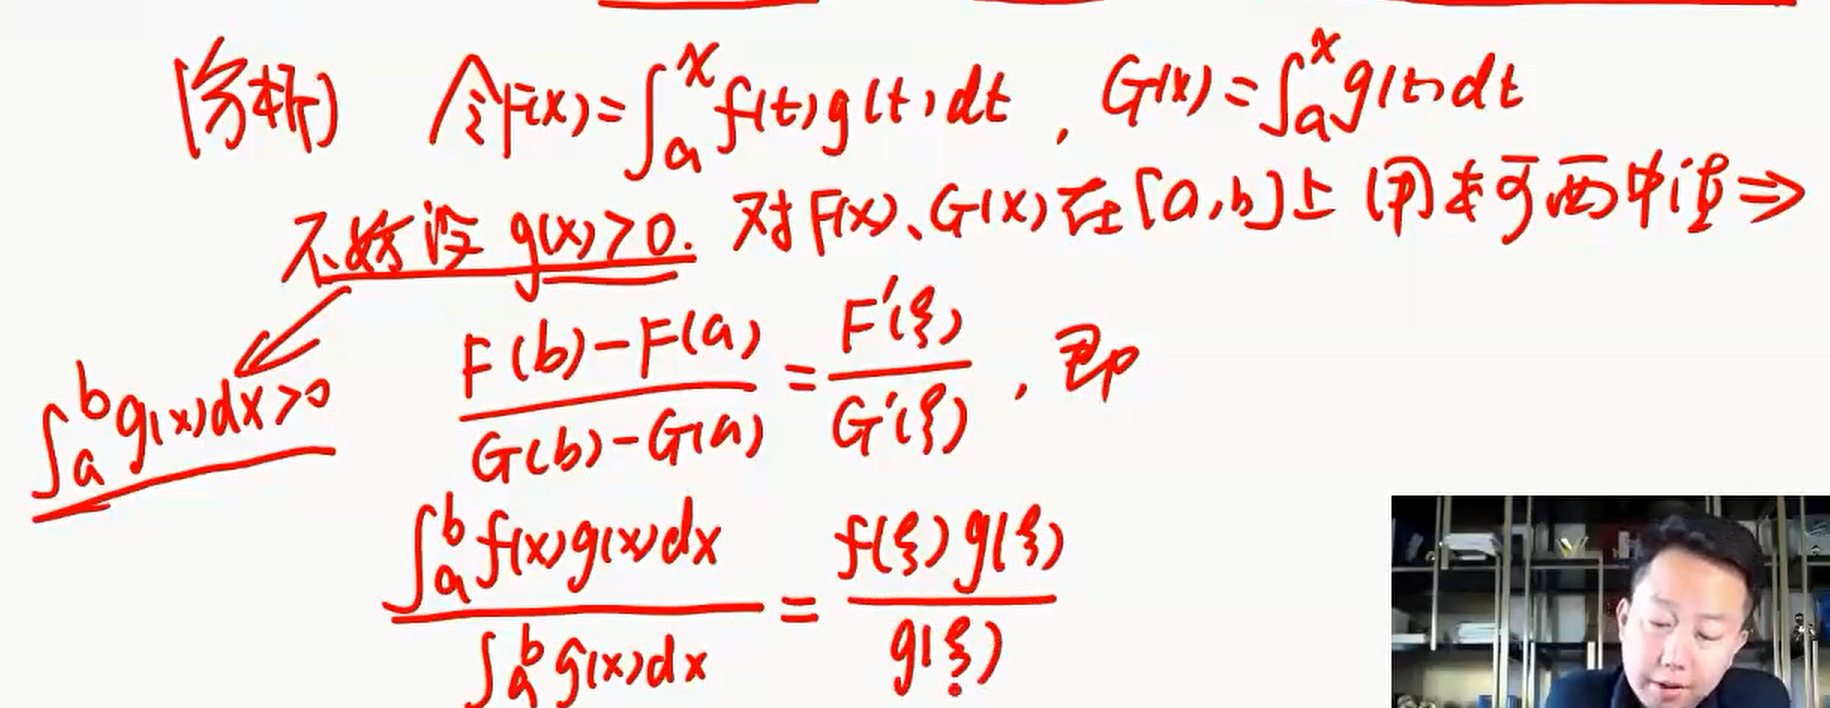 [分析] 令F(x)=∫_a^x f(t)g(t)dt, G(x)=∫_a^x g(t)dt
不妨设 g(x)>0. 对F(x)、G(x)在[a,b]上用柯西中值⇒
∫_a^b g(x)dx>0
(F(b)-F(a))/(G(b)-G(a)) = F'(ξ)/G'(ξ), 即
∫_a^b f(x)g(x)dx / ∫_a^b g(x)dx = f(ξ)g(ξ)/g(ξ)